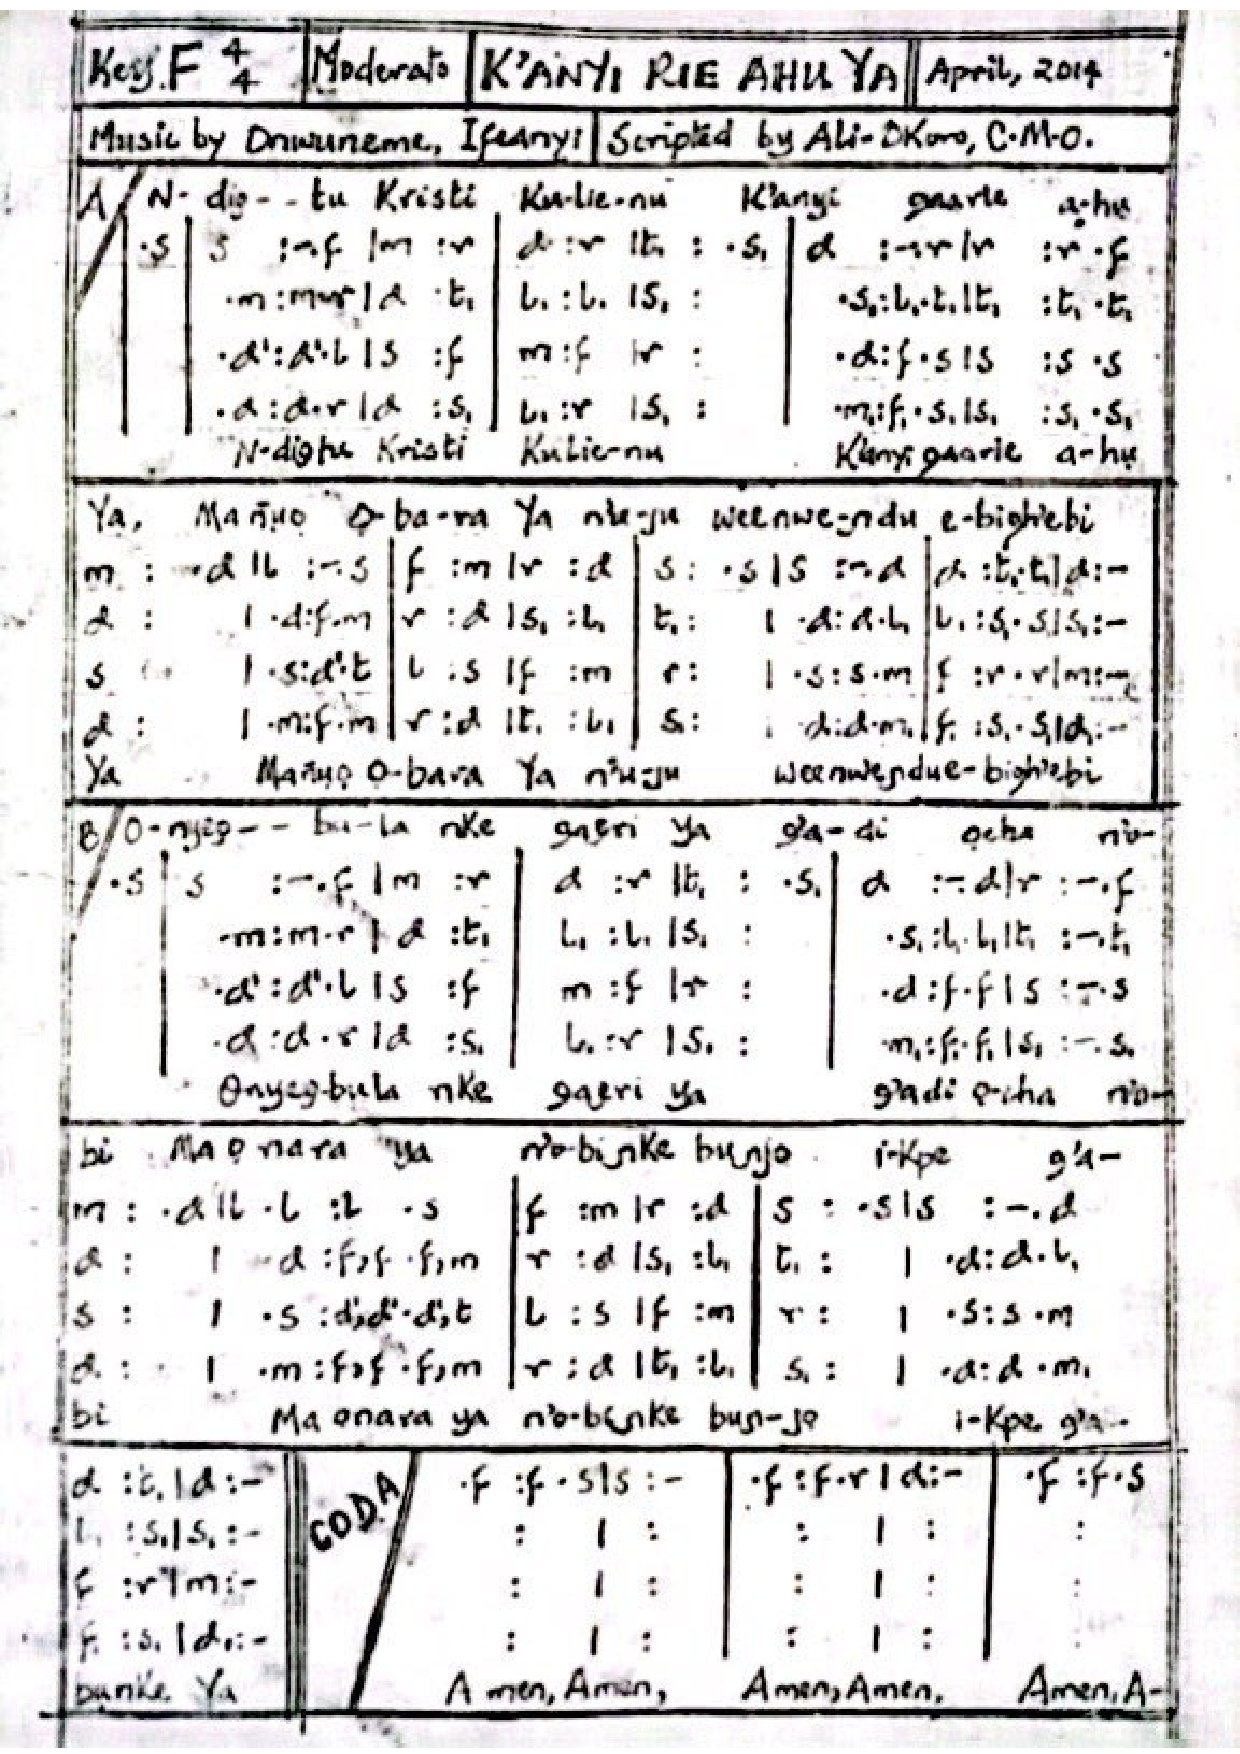 Key.F 4/4 Moderato K'ANYI RIE AHU YA April, 2014
Music by Onwuneme, Ifeanyi Scripted by Ali-Okoro, C.M.O.
A/ N-dig--tu Kristi Ku-lie-nu K'anyi gaarie a-hụ
.s | s :-.f |m :r | d :r |t₁ : .s₁ | d :-.r|r :r .f
.m:m.r|d .t₁ | l₁ :l₁ |s₁ : .s₁:l₁.t₁|t₁ :t₁ .t₁
.d':d'.l|s :f m:f |r : .d:f.s|s :s .s
.d:d.r|d :s₁ l₁:r |s₁ : .m₁:f₁.s₁|s₁ :s₁ .s₁
N-digtu Kristi Kulie-nu K'anyi gaarie a-hụ
Ya, Mañụọ Ọ-ba-ra Ya n'u-ju weenwe-ndu e-bigh'ebi
m : .d|l :-.s | f :m |r :d | s: .s|s :-.d | d :t₁.t₁|d:-
d : | .d:f.m | r :d |s₁ :l₁ | t₁: | .d:d.l₁ | l₁:s₁.s₁|s₁:-
s | .s:d'.t | l :s |f :m r: | .s:s.m | f :r.r|m:-
d : | .m:f.m | r :d |t₁ :l₁ | s₁: .d:d.m₁ | f₁ :s₁.s₁|d₁:-
Ya Mañụọ O-bara Ya n'u-ju weenwendue-bigh'ebi
B/ O-nyeg-- bu-la nke gaeri ya g'a-di ọcha n'o-
.s | s :-.f |m :r | d :r |t₁ : .s₁ | d :-.d|r :-.f
.m:m.r|d :t₁ l₁ :l₁ |s₁ : .s₁:l₁.l₁|t₁ :-.t₁
.d':d'.l|s :f m :f |r : .d:f.f|s :-.s
.d:d.r|d :s₁ | l₁:r |s₁ : | .m₁:f₁.f₁|s₁ :-.s₁
Onyeg-bula nke gaeri ya g'adi ọ-cha n'o-
bi Ma ọ nara ya n'o-bi nke bụ njo i-kpe g'a-
m : .d|l .l :l .s | f :m |r :d | s : .s|s :-.d
d : | d :f,f .f,m | r :d |s₁ :l₁ | t₁ : | .d:d.l₁
s : | .s :d',d'.d',t | l :s |f :m | r : | .s:s .m
d : | .m :f,f .f,m | r :d |t₁ :l₁ | s₁ : | .d:d .m₁
bi Ma ọnara ya n'o-bi nke bun-jo i-kpe g'a-
d :t₁|d:- CODA .f :f .s|s :- | .f :f.r|d:- | .f :f.s
l₁ :s₁|s₁:- : | : : | : :
f :r|m:- : | : : | : :
f₁ :s₁|d₁:- : | : : | : :
bunke Ya A men, Amen, Amen, Amen, Amen, A-